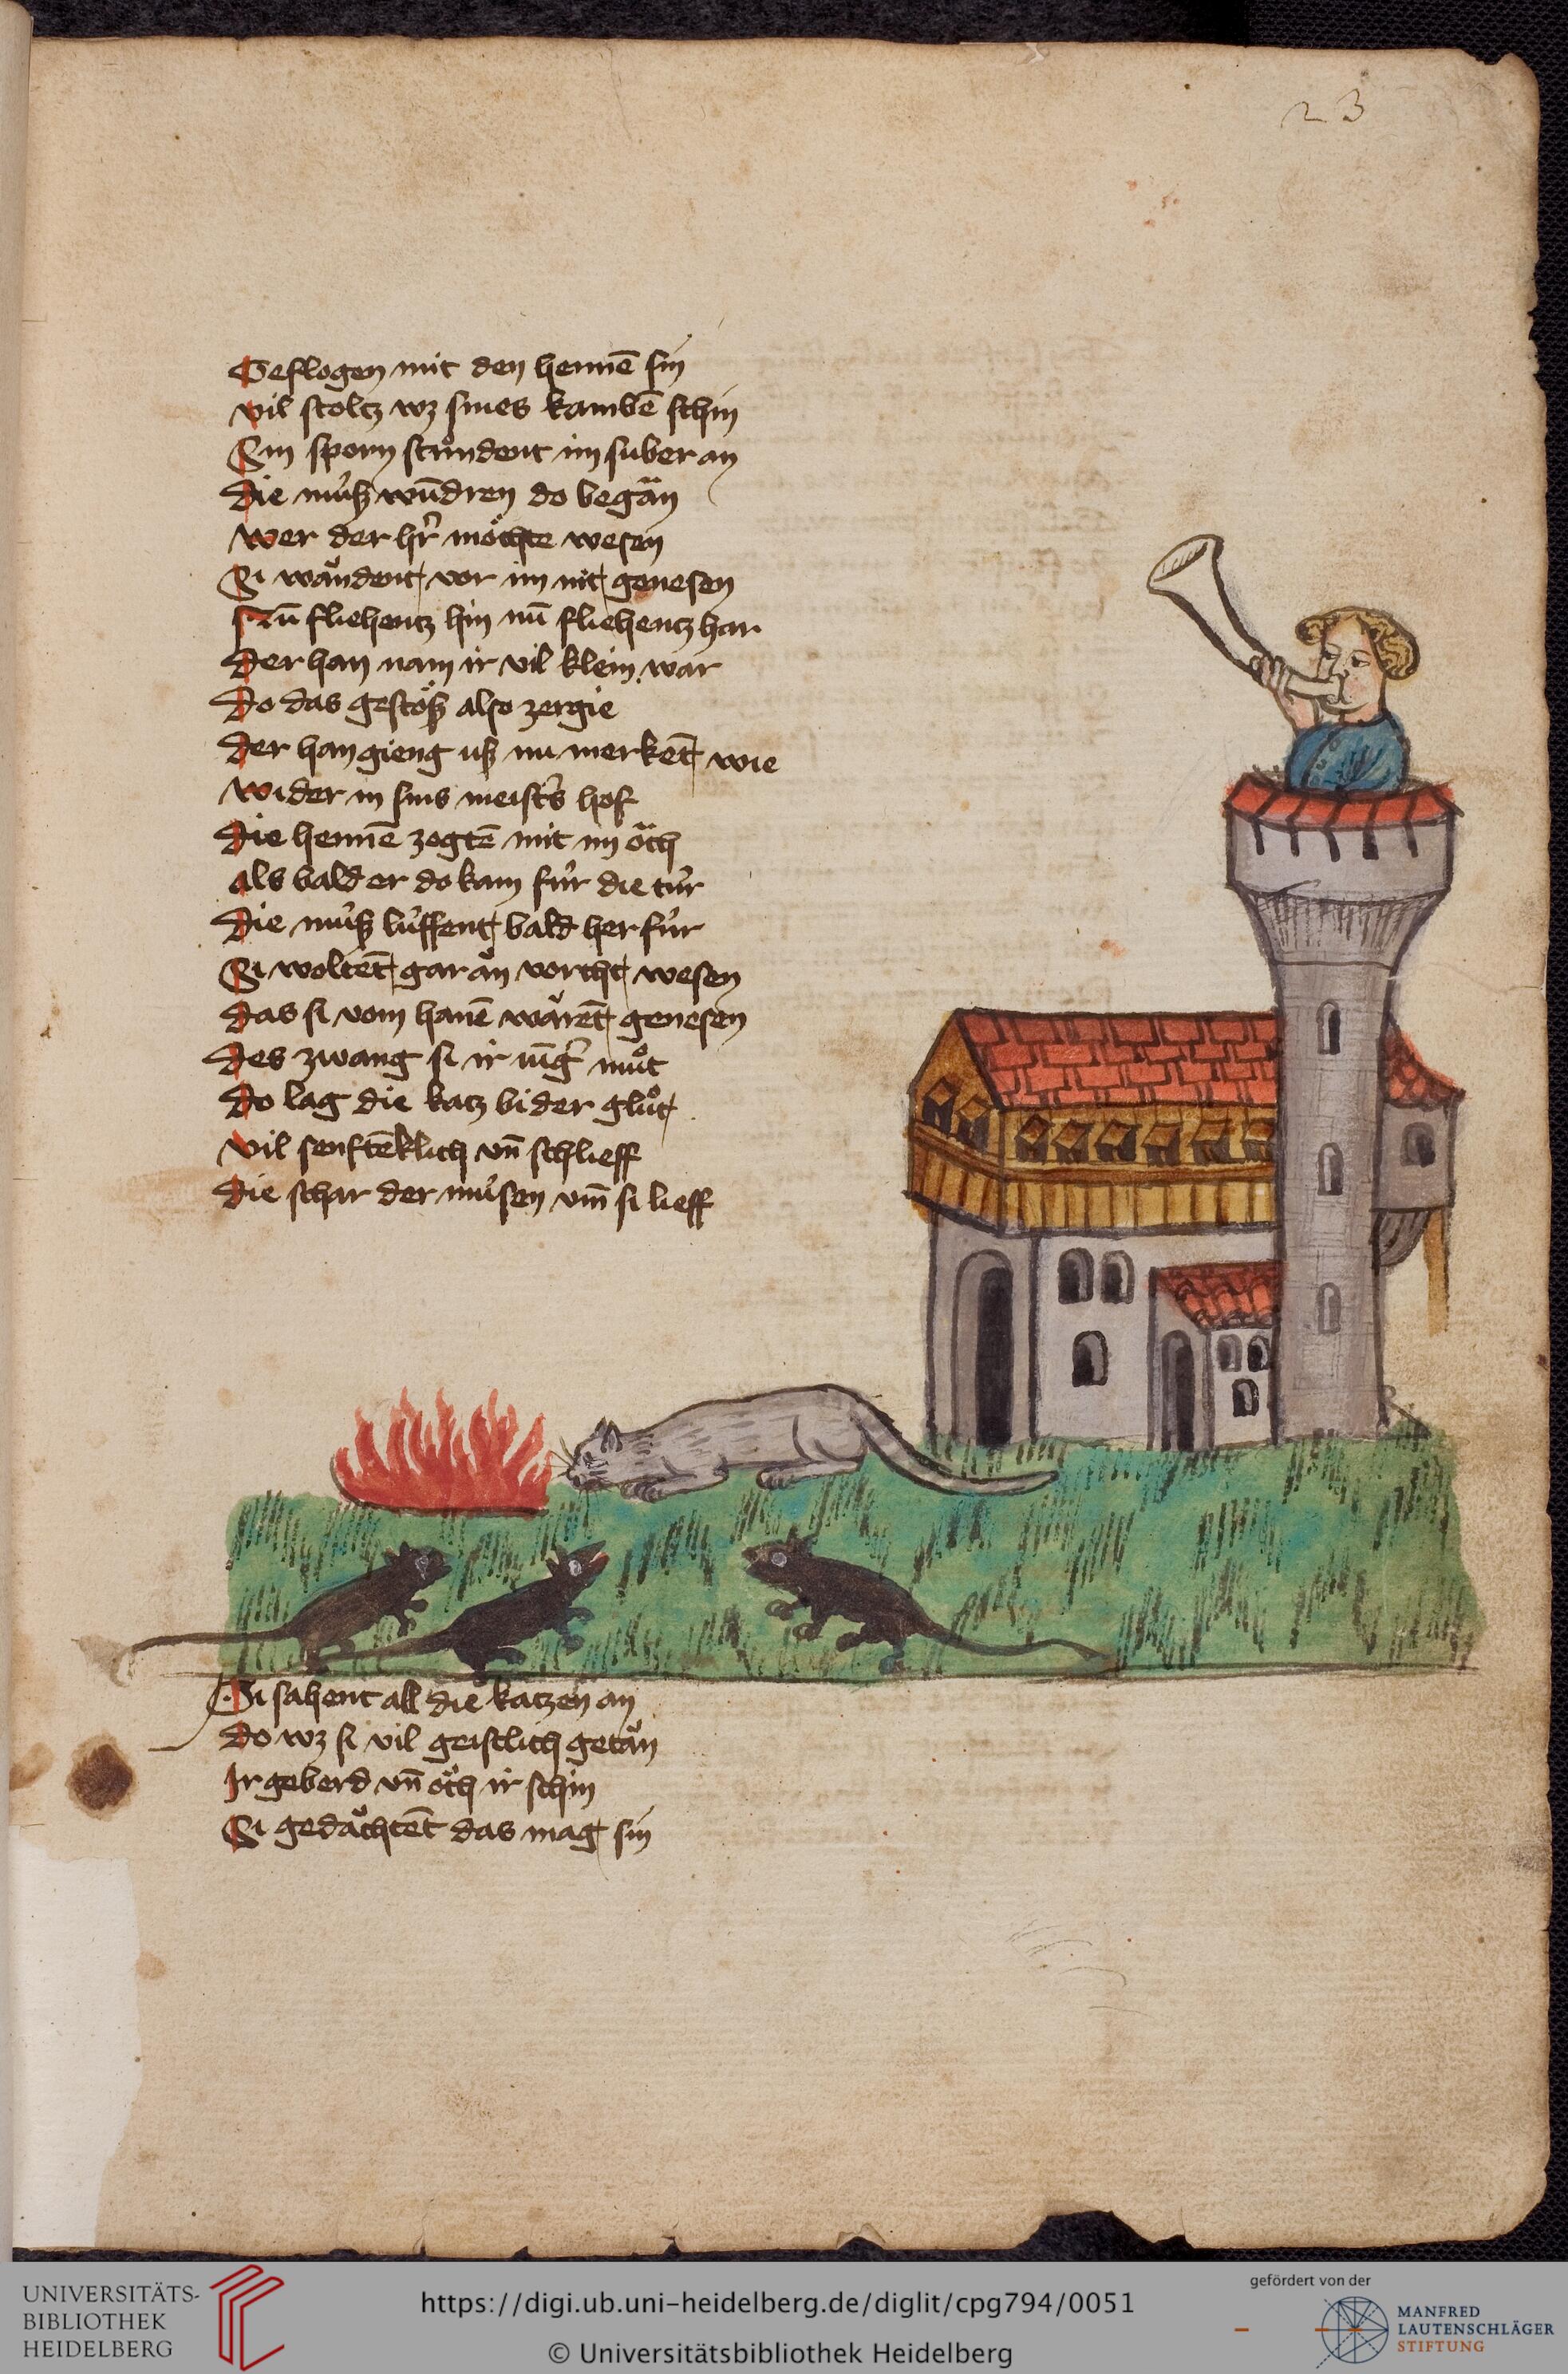 23
Geflogen mit den hennē sin
vil stoltz wz sines kambē schin
Sin sporn stůndent im suber an
die mu̍ß wūdren do begän
wer der hr̄ möchte wesen
Si wăndent vor im nit genesen
Nū fliehentz hin nū fliehentz har
der han nam ir vil klein war
do das gestöß also zergie
der han gieng uß nu merkēt wie
wider in sins meist's hof
die hennē zogtē mit im öch
als bald er do kam fu̍r die tu̍r
die mu̍ß lu̍ffent bald her fu̍r
Si woltēt gar ăn vorcht wesen
das si vom hanē wărēt genesen
des zwang si ir iūg' můt
do lag die katz bi der glůt
vil senftēklich vn̄ schlieff
die schar der mu̍sen vm̄ si lieff
Si sahent all die katzen an
do wz si vil geistlich getăn
Ir geberd vn̄ öch ir schin
Si gedăchtēt das mag sin
UNIVERSITÄTS-
BIBLIOTHEK
HEIDELBERG
https://digi.ub.uni-heidelberg.de/diglit/cpg794/0051
© Universitätsbibliothek Heidelberg
gefördert von der
MANFRED
LAUTENSCHLÄGER
STIFTUNG